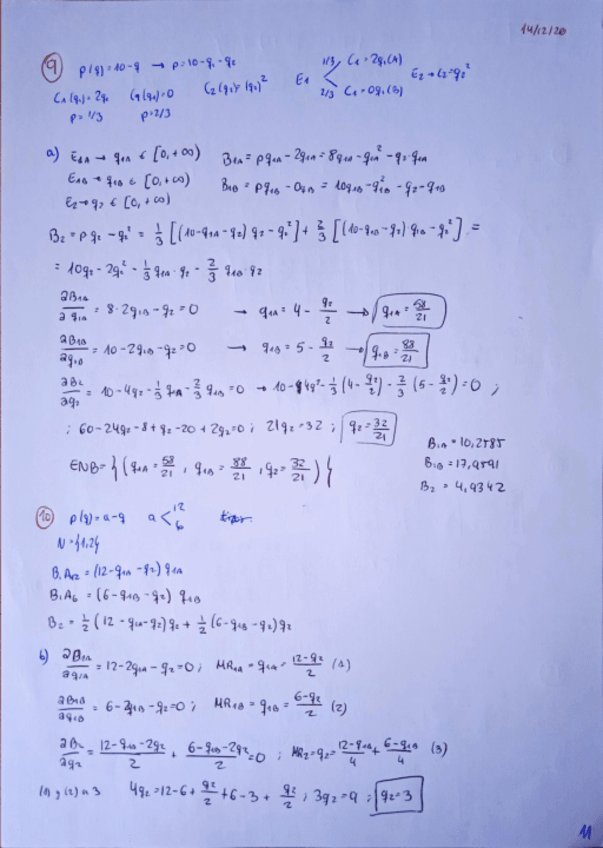 14/12/20
9 p(q)=10-q → p=10-q₁-q₂ E1 < 1/3 C₁=2q₁(A) 2/3 C₁=0q₁(B) E₂→C₂=q₂²
C₁(q₁)=2q₁ C₁(q₁)=0 C₂(q₂)=(q₂)²
p=1/3 p=2/3
a) E₁A → q₁A ∈ [0,+∞) B₁A = pq₁A - 2q₁A = 8q₁A - q₁A² - q₂·q₁A
E₁B → q₁B ∈ [0,+∞) B₁B = pq₁B - 0q₁B = 10q₁B - q₁B² - q₂ - q₁B
E₂ → q₂ ∈ [0,+∞)
B₂ = pq₂ - q₂² = 1/3 [(10-q₁A-q₂)q₂ - q₂²] + 2/3 [(10-q₁B-q₂)q₁B - q₂²] =
= 10q₂ - 2q₂² - 1/3 q₁A·q₂ - 2/3 q₁B·q₂
∂B₁A/∂q₁A = 8-2q₁B-q₂=0 → q₁A = 4 - q₂/2 → q₁A = 58/21
∂B₁B/∂q₁B = 10-2q₁B-q₂=0 → q₁B = 5 - q₂/2 → q₁B = 88/21
∂B₂/∂q₂ = 10-4q₂-1/3 q₁A-2/3 q₁B=0 → 10-4q₂-1/3(4-q₂/2)-2/3(5-q₂/2)=0 ;
; 60-24q₂-8+q₂-20+2q₂=0 ; 21q₂=32 ; q₂=32/21
B₁A = 10,2585
ENB={(q₁A=58/21, q₁B=88/21, q₂=32/21)} B₁B = 17,9591
B₂ = 4,9342
10 p(q)=a-q a < 12 6
N={1,2}
B₁A₁₂ = (12-q₁A-q₂)q₁A
B₁A₆ = (6-q₁B-q₂) q₁B
B₂ = 1/2(12-q₁A-q₂)q₂ + 1/2(6-q₁B-q₂)q₂
b) ∂B₁A/∂q₁A = 12-2q₁A-q₂=0 ; MR₁A = q₁A = 12-q₂/2 (1)
∂B₁B/∂q₁B = 6-2q₁B-q₂=0 ; MR₁B = q₁B = 6-q₂/2 (2)
∂B₂/∂q₂ = 12-q₁A-2q₂/2 + 6-q₁B-2q₂/2 = 0 ; MR₂=q₂= 12-q₁A/4 + 6-q₁B/4 (3)
(1) y (2) n 3 4q₂=12-6+q₂/2+6-3+q₂/2 ; 3q₂=9 ; q₂=3
11